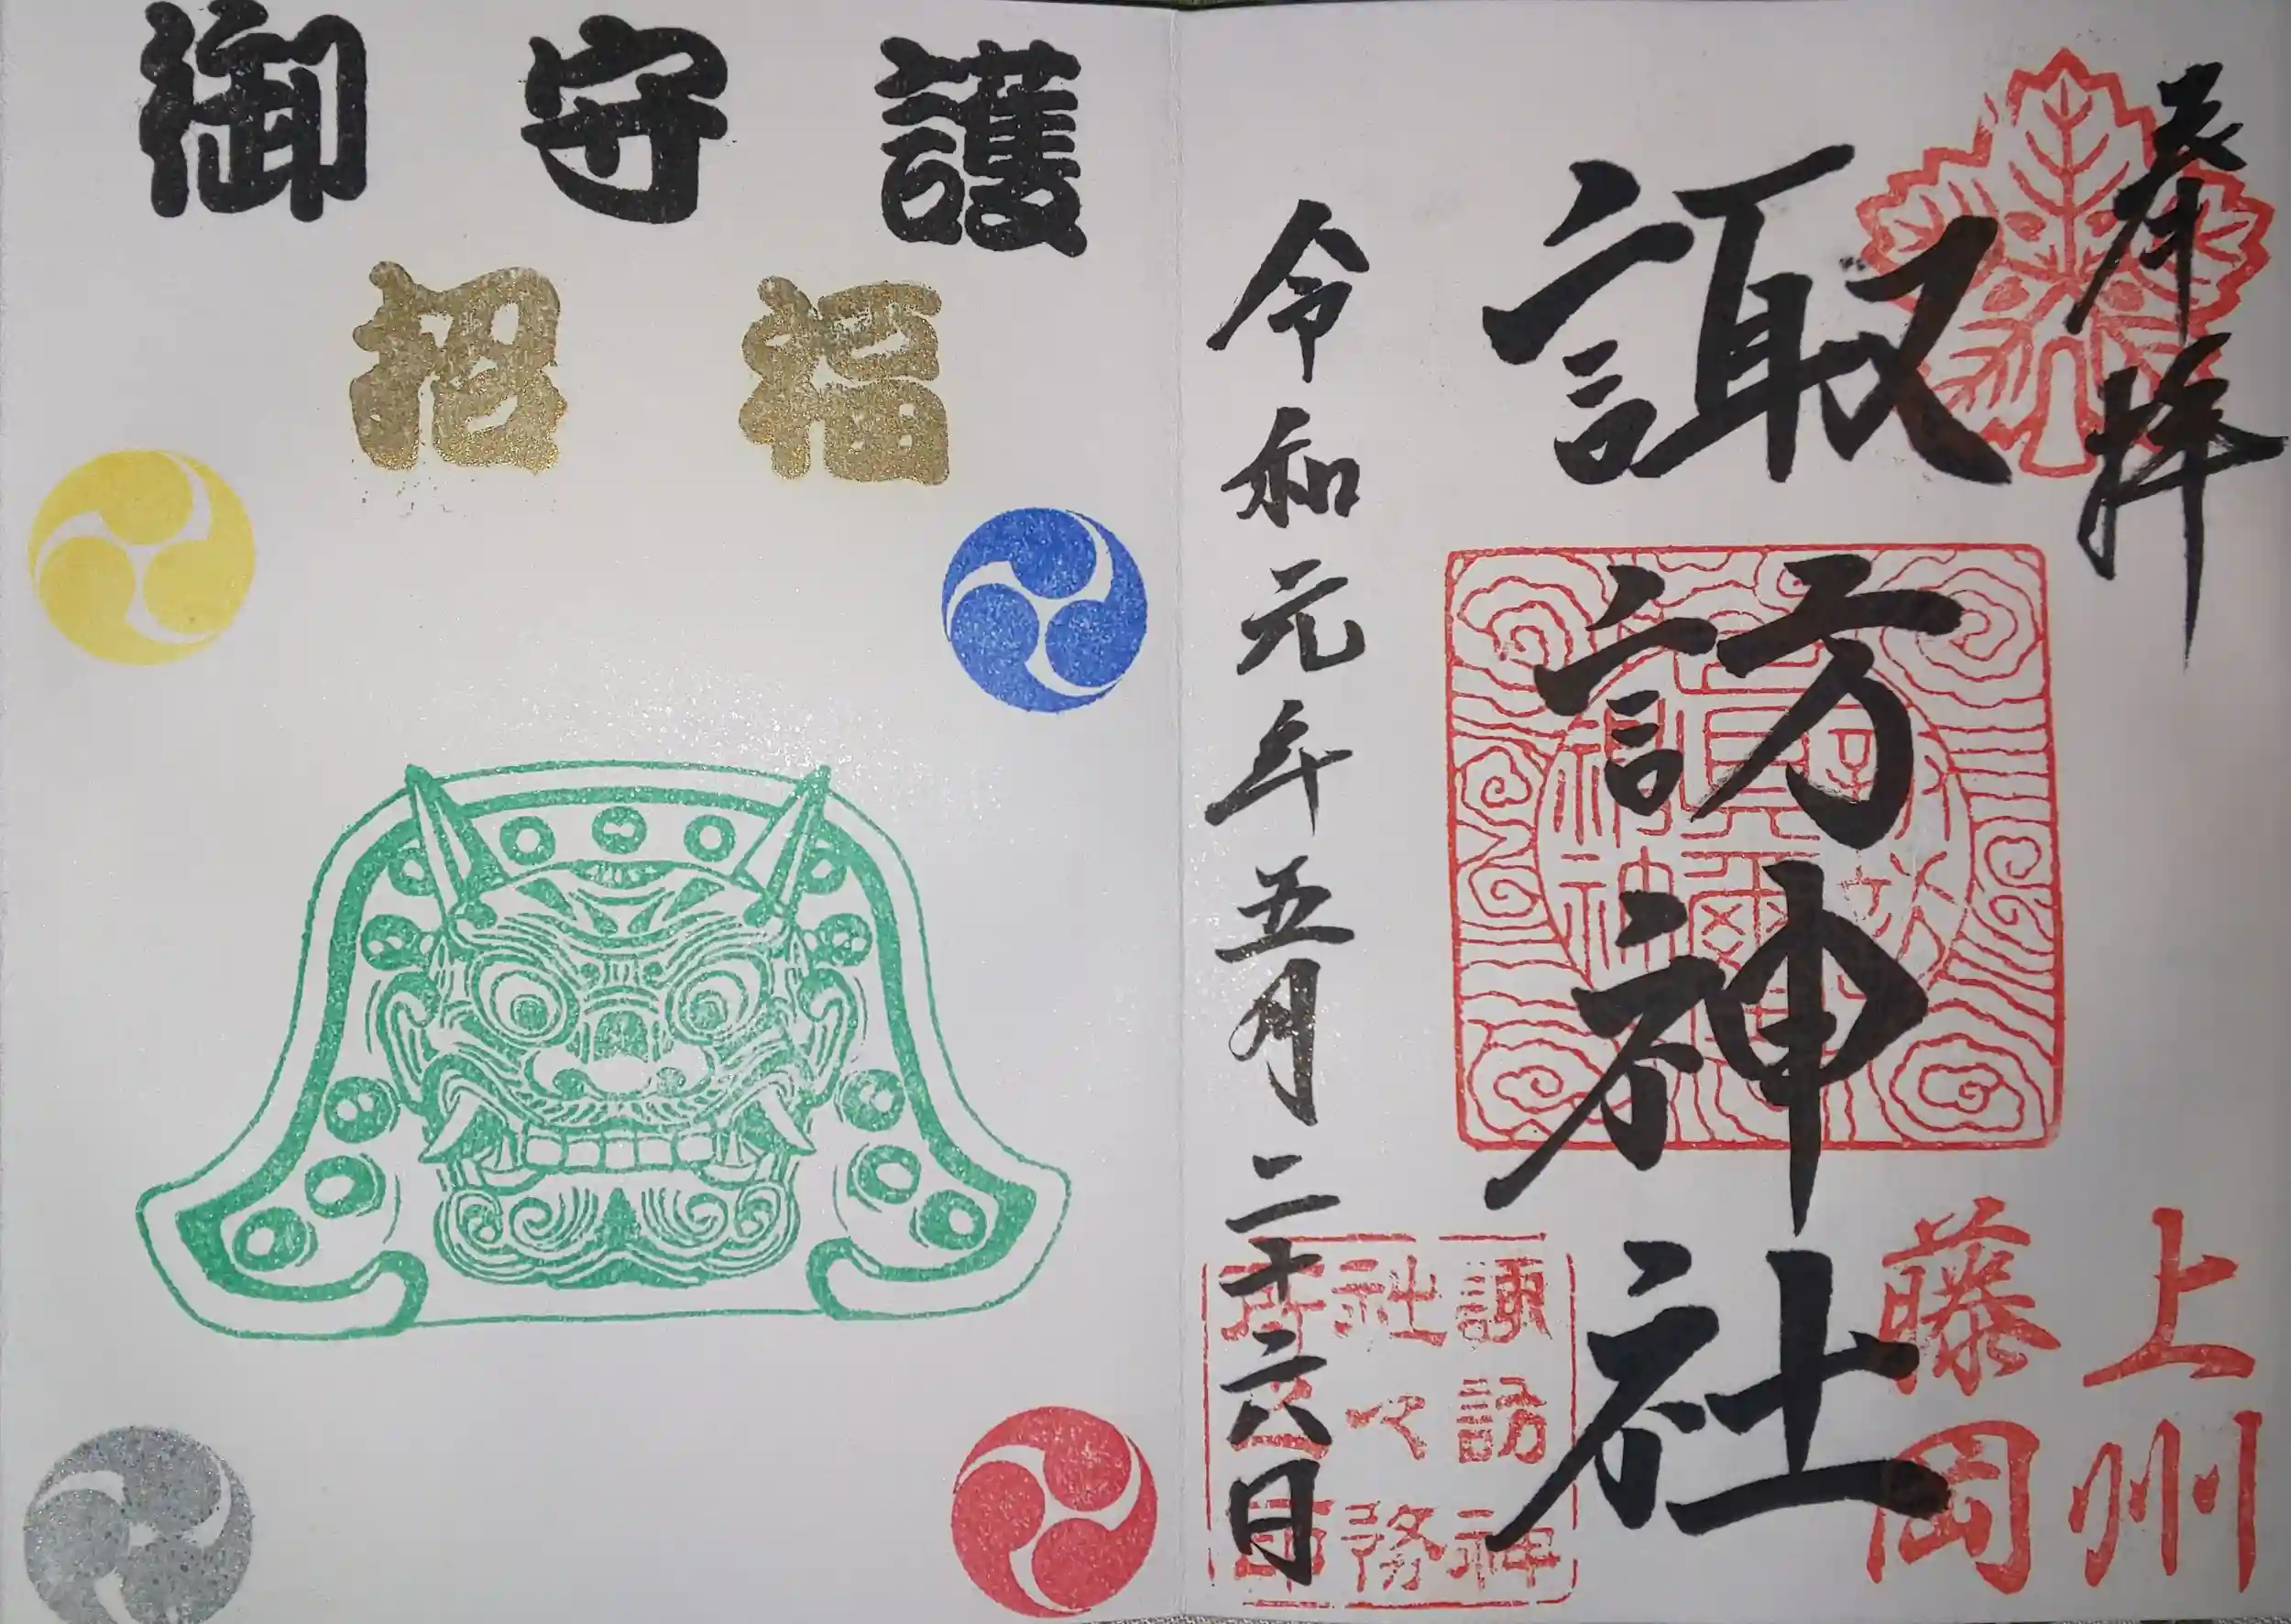 奉拝
諏訪神社
上州
藤岡
令和元年五月二十六日
諏訪神
社々務
所之印
御守護
招福